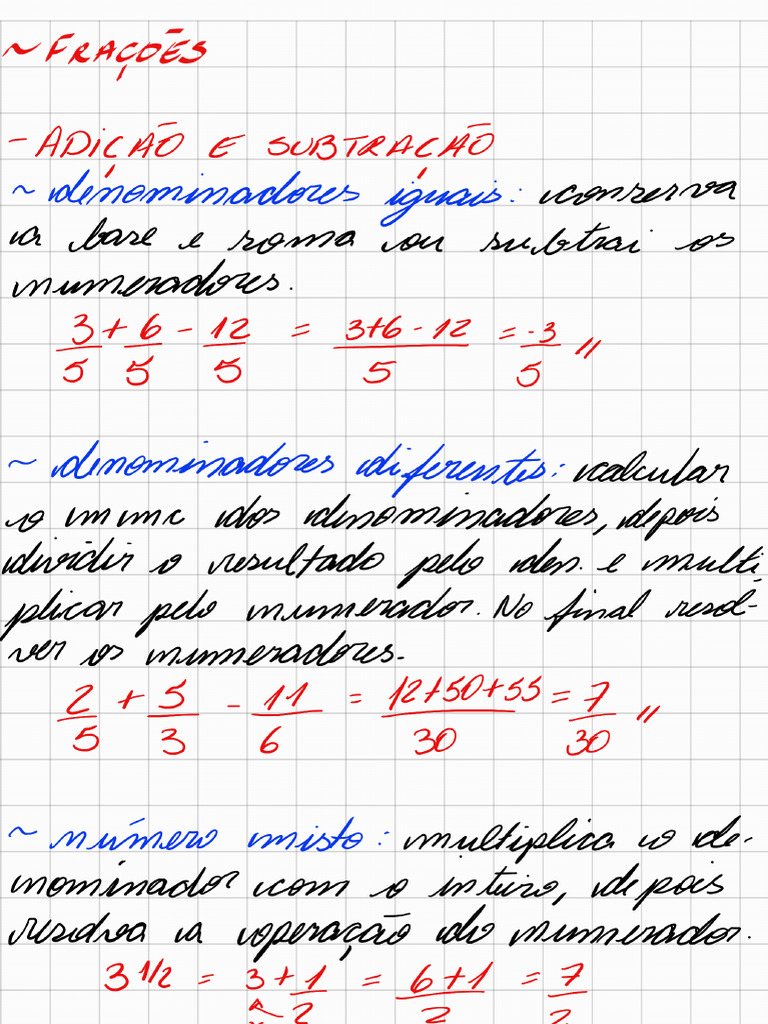 ~ FRAÇÕES
- ADIÇÃO E SUBTRAÇÃO
~ denominadores iguais: conserva
a base e soma ou subtrai os
numeradores.
3/5 + 6/5 - 12/5 = (3+6-12)/5 = -3/5 //
~ denominadores diferentes: calcular
o mmc dos denominadores, depois
dividir o resultado pelo den. e multi
plicar pelo numerador. No final resol-
ver os numeradores.
2/5 + 5/3 - 11/6 = (12+50+55)/30 = 7/30 //
~ número misto: multiplica o de-
nominador com o inteiro, depois
resolva a operação do numerador.
3 1/2 = 3 + 1/2 = (6+1)/2 = 7/2